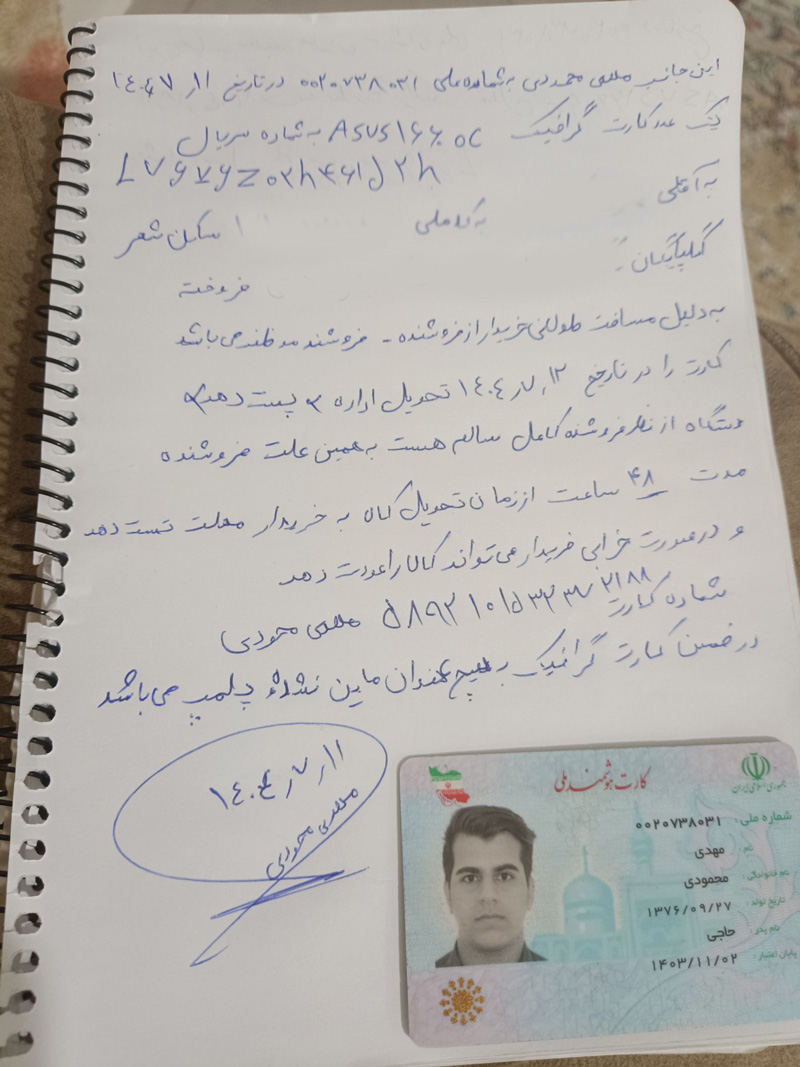 این جانب مهدی محمودی به شماره ملی ۰۰۲۰۷۳۸۰۳۱ در تاریخ ۱۴۰۴٫۷٫۱۱
یک عدد کارت گرافیک ASUS ۱۶۶۰ OC به شماره سریال
به آقای
به کد ملی ساکن شهر
گلپایگان
فروخته
به دلیل مسافت طولانی خریدار از فروشنده - فروشنده موظف می باشد
کارت را در تاریخ ۱۴۰۴٫۷٫۱۲ تحویل اداره پست دهد
دستگاه از نظر فروشنده کامل سالم هست به همین علت فروشنده
مدت ۴۸ ساعت از زمان تحویل کالا به خریدار مهلت تست دهد
و در صورت خرابی خریدار می تواند کالا را عودت دهد
شماره کارت مهدی محمودی
در ضمن کارت گرافیک به هیچ عنوان ماین نشده پلمپ می باشد
۱۴۰۴٫۷٫۱۱
مهدی محمودی
کارت هوشمند ملی
جمهوری اسلامی ایران
شماره ملی: ۰۰۲۰۷۳۸۰۳۱
نام: مهدی
نام خانوادگی: محمودی
تاریخ تولد: ۱۳۷۶/۰۹/۲۷
نام پدر: حاجی
پایان اعتبار: ۱۴۰۳/۱۱/۰۲